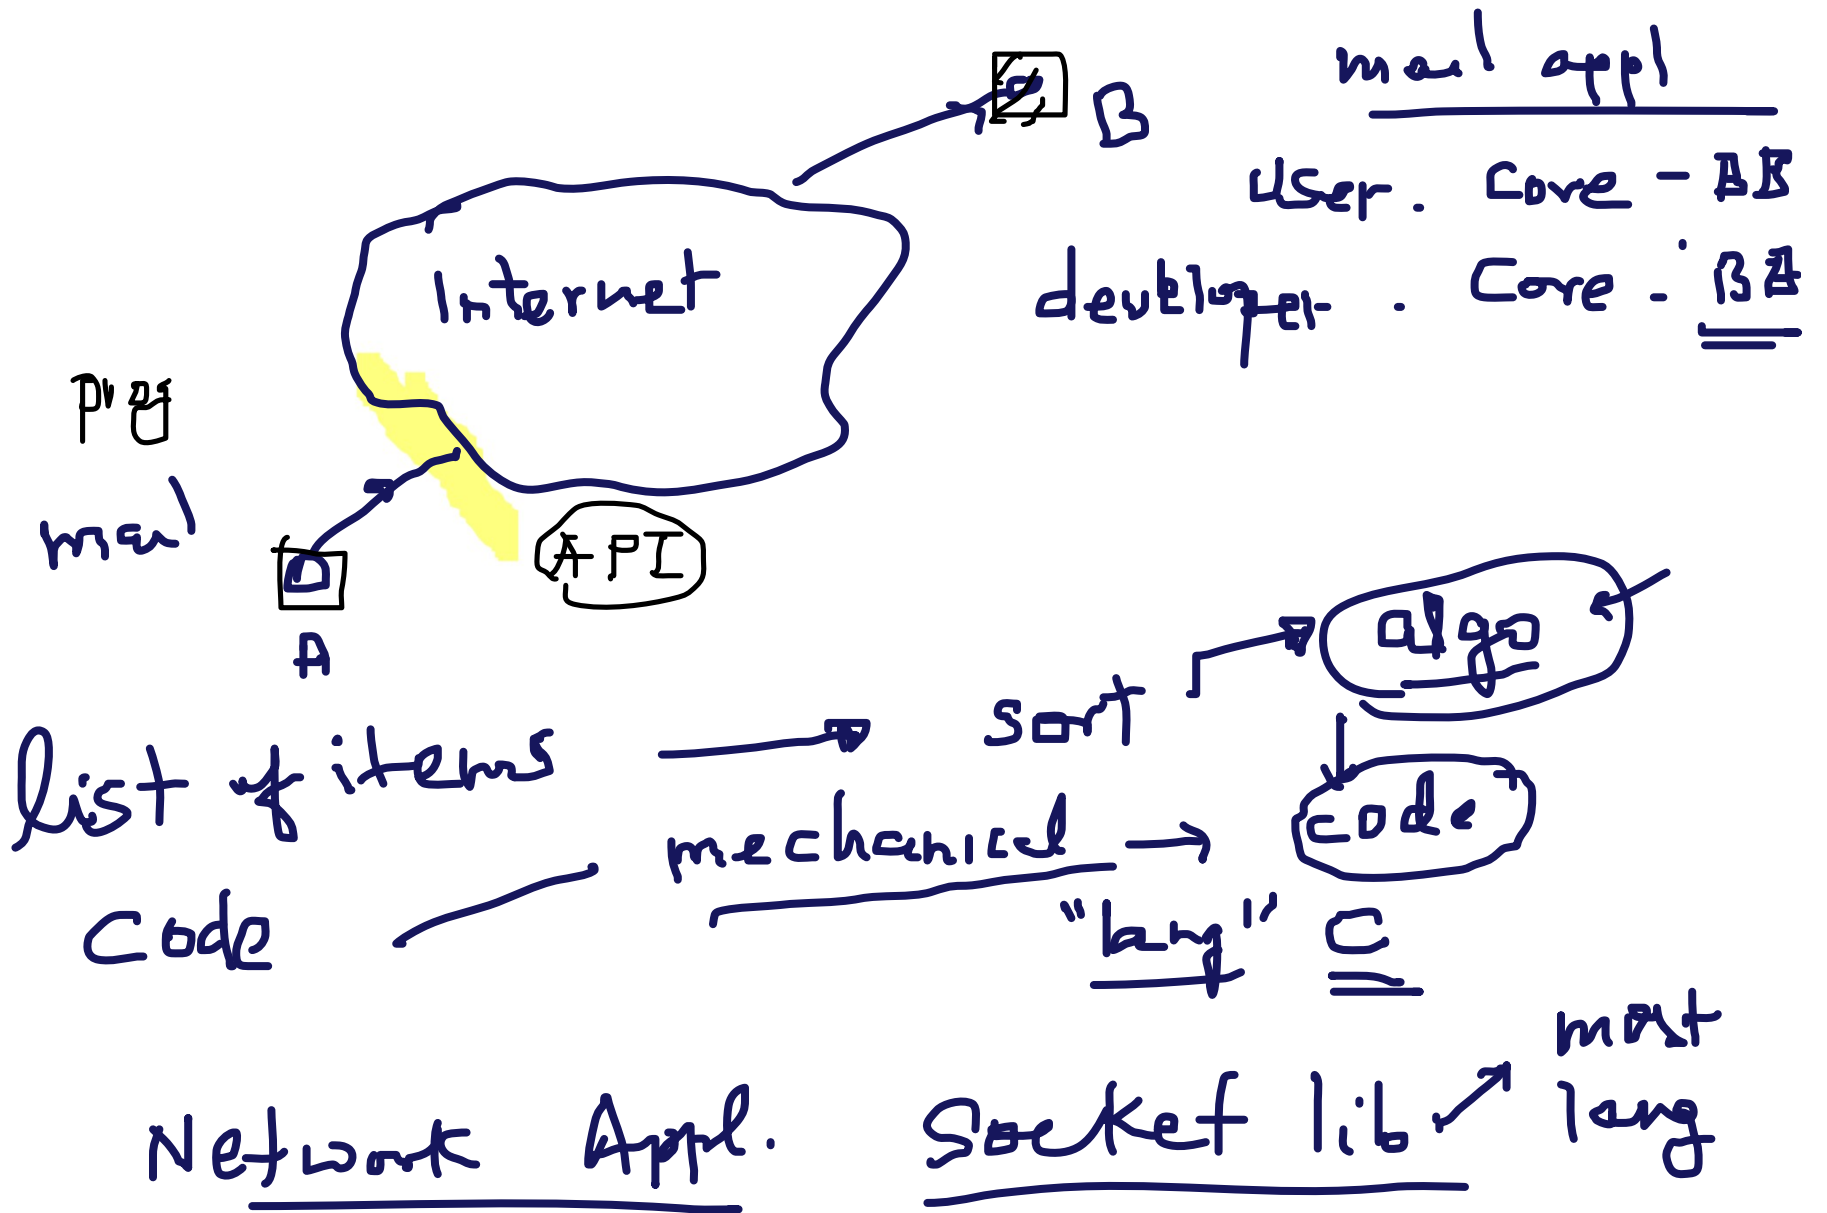 B
mail appl
user. Core - AB
developer. Core - BA
Internet
prog
mail
API
A
algo
list of items
sort
code
mechanical
Code
"lang" C
most
lang
Network Appl.
Socket lib